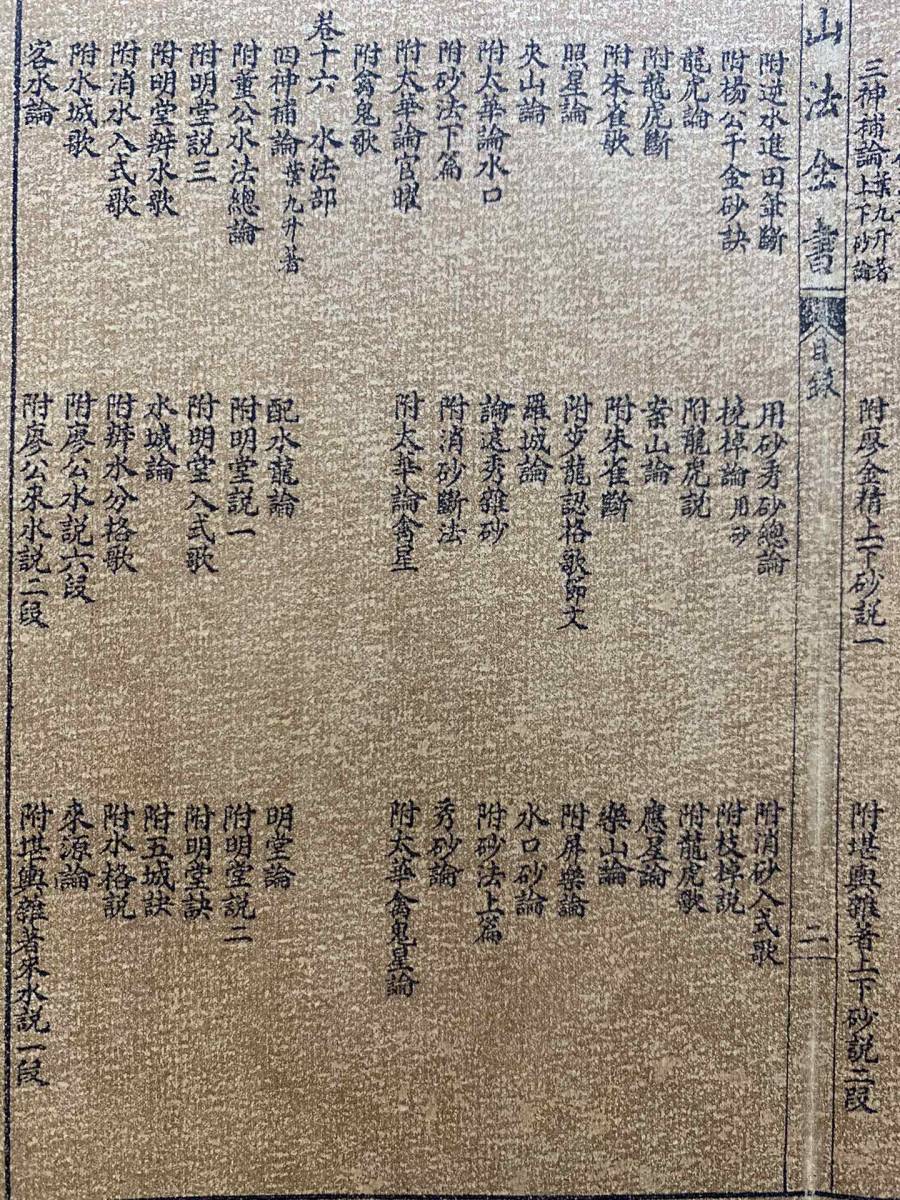 三神補論 葉九升著 上下砂論 附廖金精上下砂説一 附堪輿雜著上下砂説二段
山法全書 目錄 二
附逆水進田筆斷 用砂秀砂總論 附消砂入式歌
附楊公千金砂訣 橈棹論用砂 附枝棹説
龍虎論 附龍虎説 附龍虎歌
附龍虎斷 案山論 應星論
附朱雀歌 附朱雀斷 樂山論
照星論 附步龍認格歌節文 附屏樂論
夾山論 羅城論 水口砂論
附太華論水口 論遠秀雜砂 附砂法上篇
附砂法下篇 附消砂斷法 秀砂論
附太華論官曜 附太華論禽星 附太華禽鬼星論
附禽鬼歌
卷十六 水法部
四神補論葉九升著 配水龍論 明堂論
附董公水法總論 附明堂説一 附明堂説二
附明堂説三 附明堂入式歌 附明堂訣
附明堂辨水歌 水城論 附五城訣
附消水入式歌 附辨水分格歌 附水格説
附水城歌 附廖公水説六段 來源論
客水論 附廖公來水説二段 附堪輿雜著來水説一段